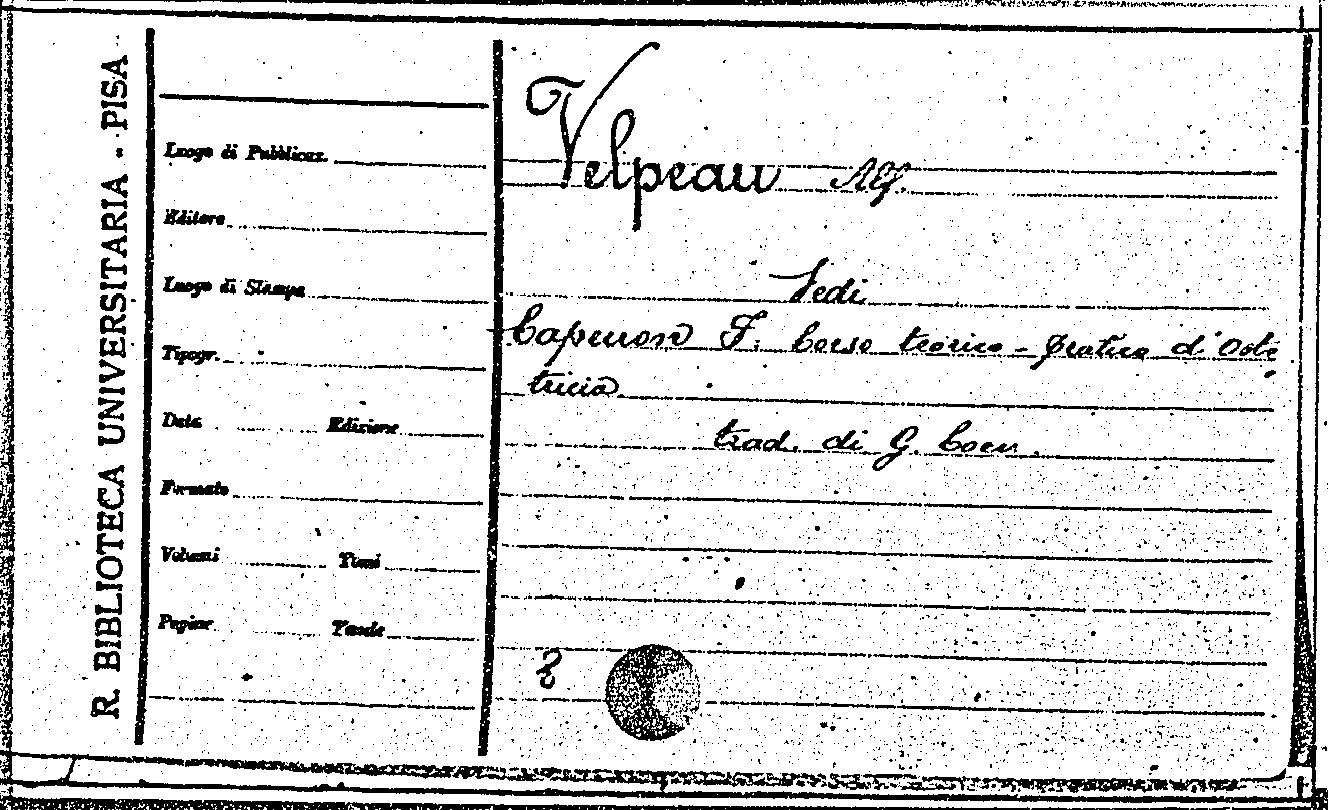 R. BIBLIOTECA UNIVERSITARIA - PISA
Luogo di Pubblicaz.
Editore
Luogo di Stampa
Tipogr.
Data Edizione
Formato
Volumi Tomi
Pagine Tavole
Velpeau Alf.
Vedi
Capuron F. Corso teorico-pratico d'Oste
tricia
trad. di G. Coen.
8